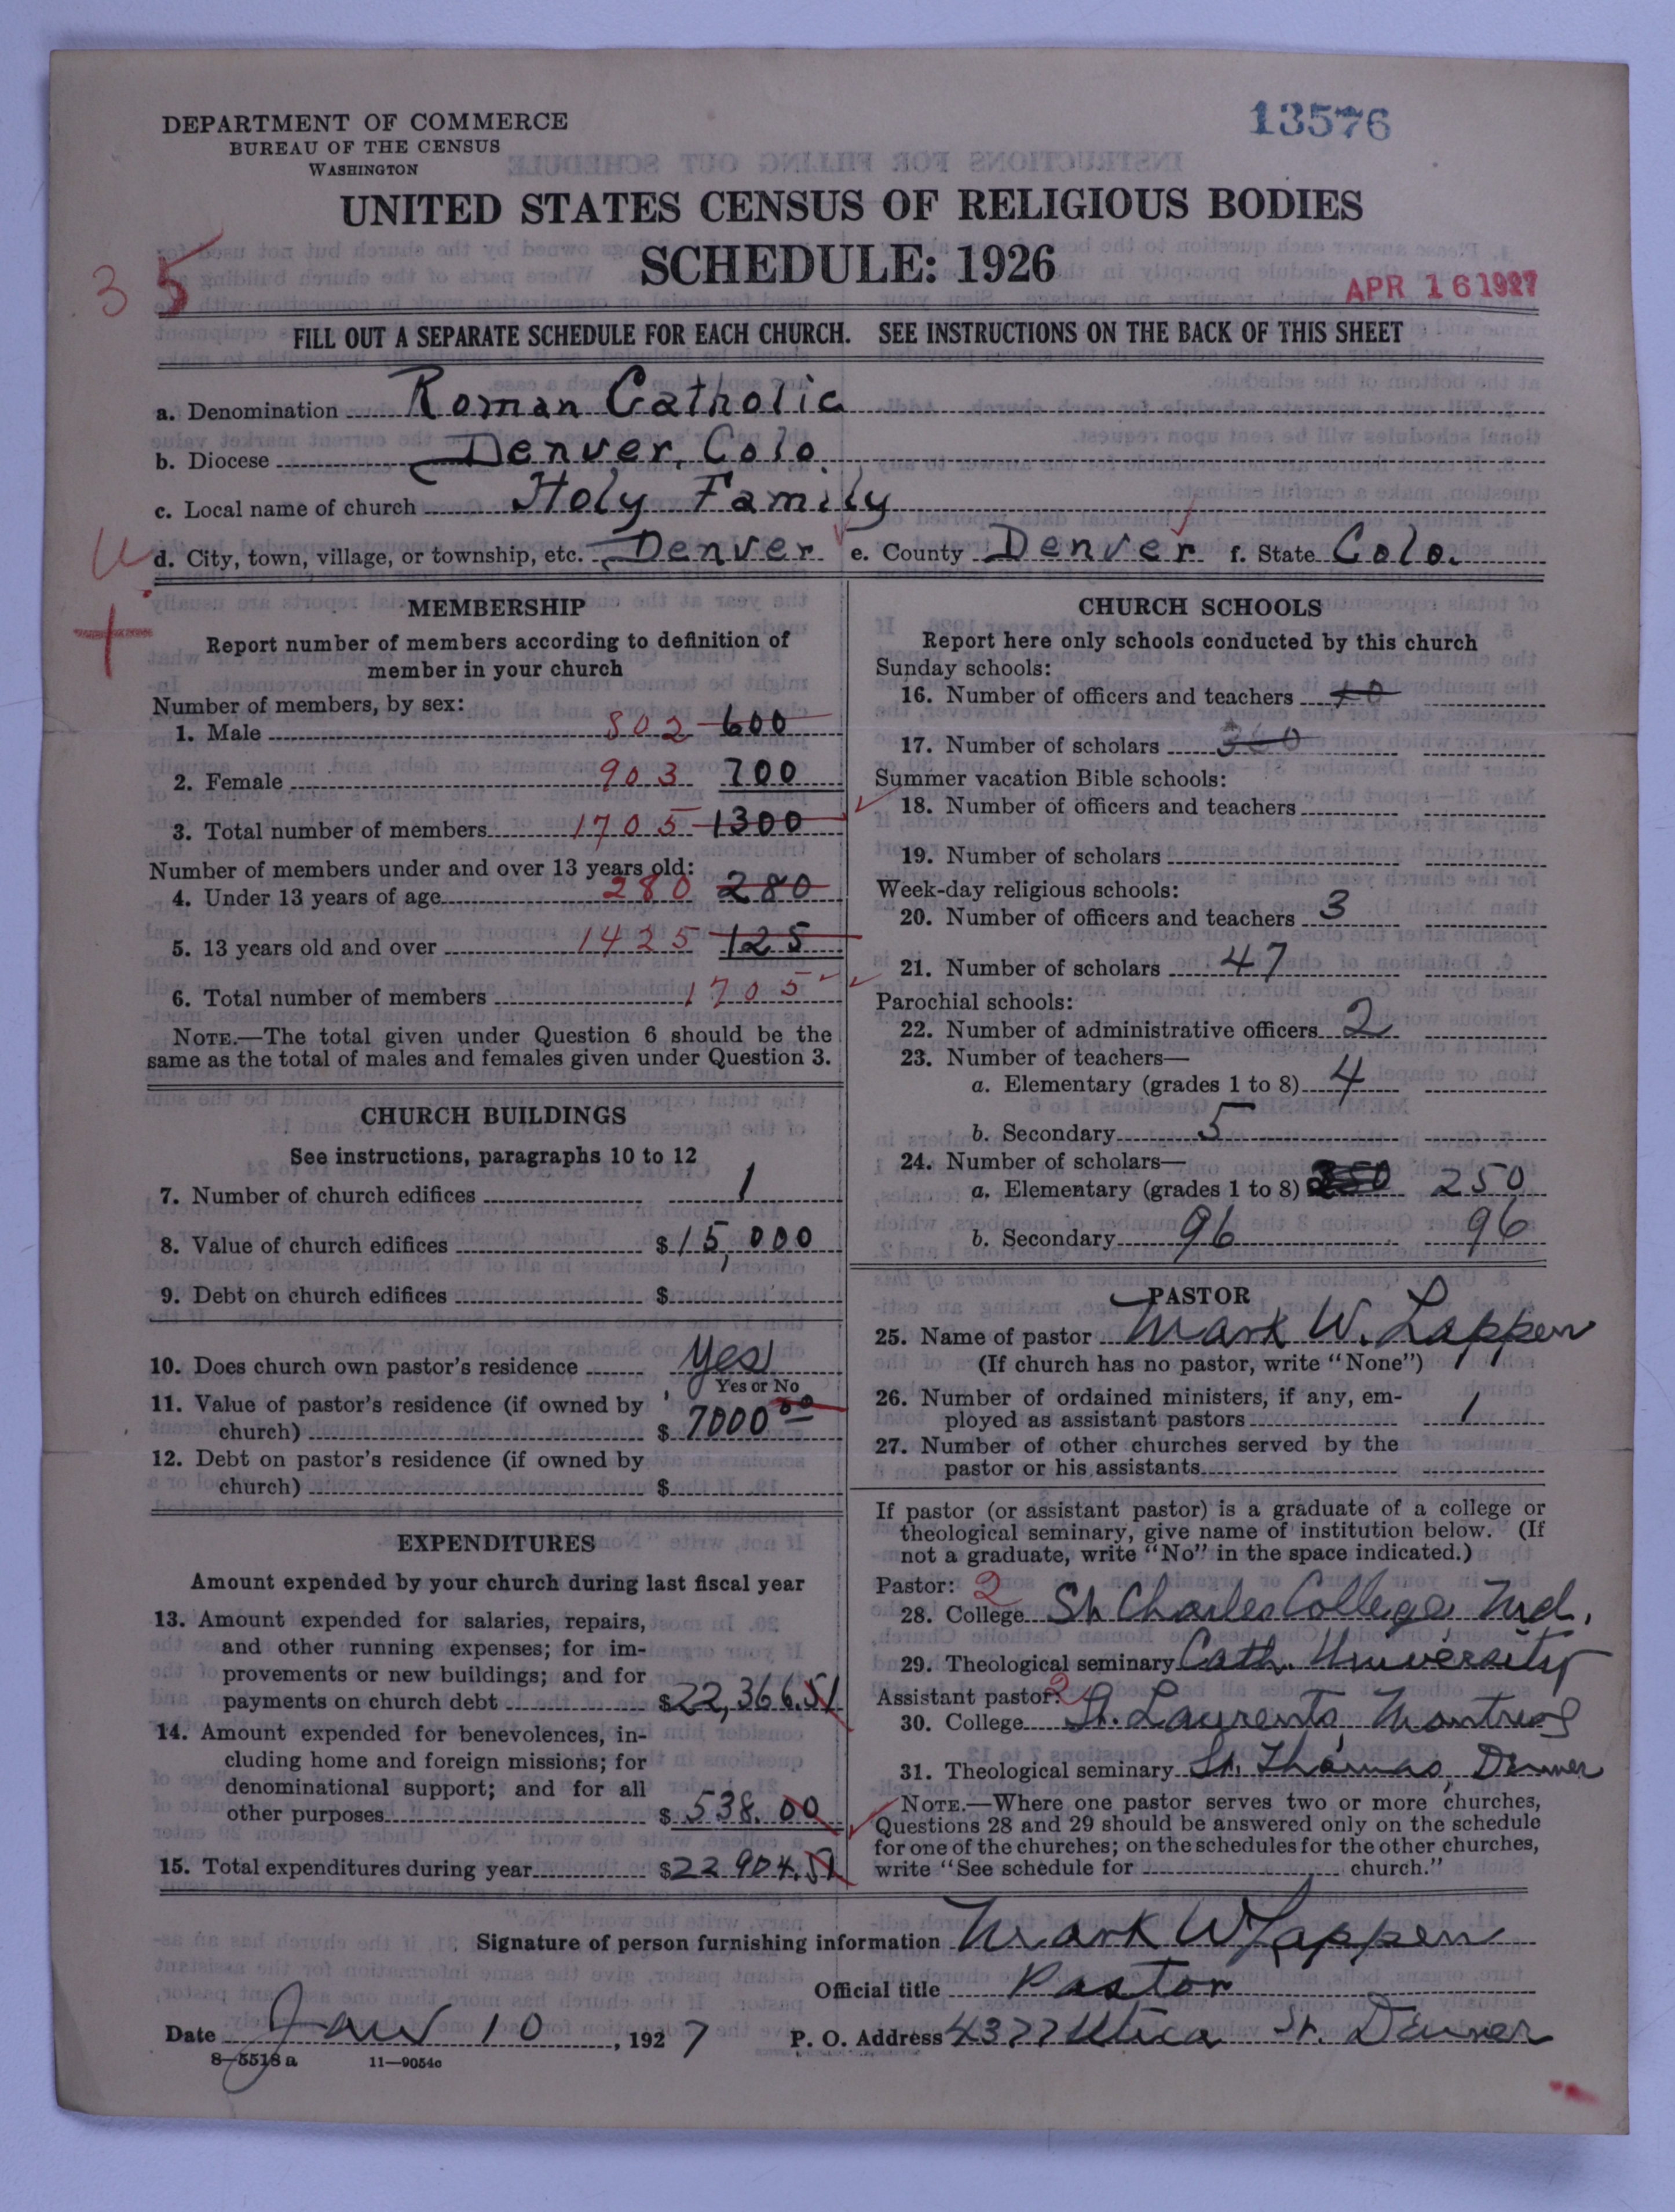 DEPARTMENT OF COMMERCE
BUREAU OF THE CENSUS
WASHINGTON
13576
UNITED STATES CENSUS OF RELIGIOUS BODIES
SCHEDULE: 1926
35
APR 16 1927
FILL OUT A SEPARATE SCHEDULE FOR EACH CHURCH. SEE INSTRUCTIONS ON THE BACK OF THIS SHEET
a. Denomination Roman Catholic
b. Diocese Denver, Colo.
c. Local name of church Holy Family
d. City, town, village, or township, etc. Denver e. County Denver f. State Colo.
MEMBERSHIP
Report number of members according to definition of
member in your church
Number of members, by sex:
1. Male 802 600
2. Female 903 700
3. Total number of members 1705 1300
Number of members under and over 13 years old:
4. Under 13 years of age 280 280
5. 13 years old and over 1425 125
6. Total number of members 1705
NOTE.—The total given under Question 6 should be the
same as the total of males and females given under Question 3.
CHURCH BUILDINGS
See instructions, paragraphs 10 to 12
7. Number of church edifices 1
8. Value of church edifices $15,000
9. Debt on church edifices $
10. Does church own pastor's residence Yes
Yes or No
11. Value of pastor's residence (if owned by
church) $ 7000 00
12. Debt on pastor's residence (if owned by
church) $
EXPENDITURES
Amount expended by your church during last fiscal year
13. Amount expended for salaries, repairs,
and other running expenses; for im-
provements or new buildings; and for
payments on church debt $22,366.51
14. Amount expended for benevolences, in-
cluding home and foreign missions; for
denominational support; and for all
other purposes $ 538.00
15. Total expenditures during year $22904.51
CHURCH SCHOOLS
Report here only schools conducted by this church
Sunday schools:
16. Number of officers and teachers 10
17. Number of scholars 300
Summer vacation Bible schools:
18. Number of officers and teachers
19. Number of scholars
Week-day religious schools:
20. Number of officers and teachers 3
21. Number of scholars 47
Parochial schools:
22. Number of administrative officers 2
23. Number of teachers—
a. Elementary (grades 1 to 8) 4
b. Secondary 5
24. Number of scholars—
a. Elementary (grades 1 to 8) 250
b. Secondary 96 96
PASTOR
25. Name of pastor Mark W. Lappen
(If church has no pastor, write "None")
26. Number of ordained ministers, if any, em-
ployed as assistant pastors 1
27. Number of other churches served by the
pastor or his assistants
If pastor (or assistant pastor) is a graduate of a college or
theological seminary, give name of institution below. (If
not a graduate, write "No" in the space indicated.)
Pastor: 2
28. College St Charles College, Md.
29. Theological seminary Cath. University
Assistant pastor: 2
30. College St. Laurents, Montreal
31. Theological seminary St. Thomas, Denver
NOTE.—Where one pastor serves two or more churches,
Questions 28 and 29 should be answered only on the schedule
for one of the churches; on the schedules for the other churches,
write "See schedule for church."
Signature of person furnishing information Mark W Lappen
Official title Pastor
Date Jan 10, 1927 P. O. Address 4377 Utica St. Denver
8—5518 a 11—9054c